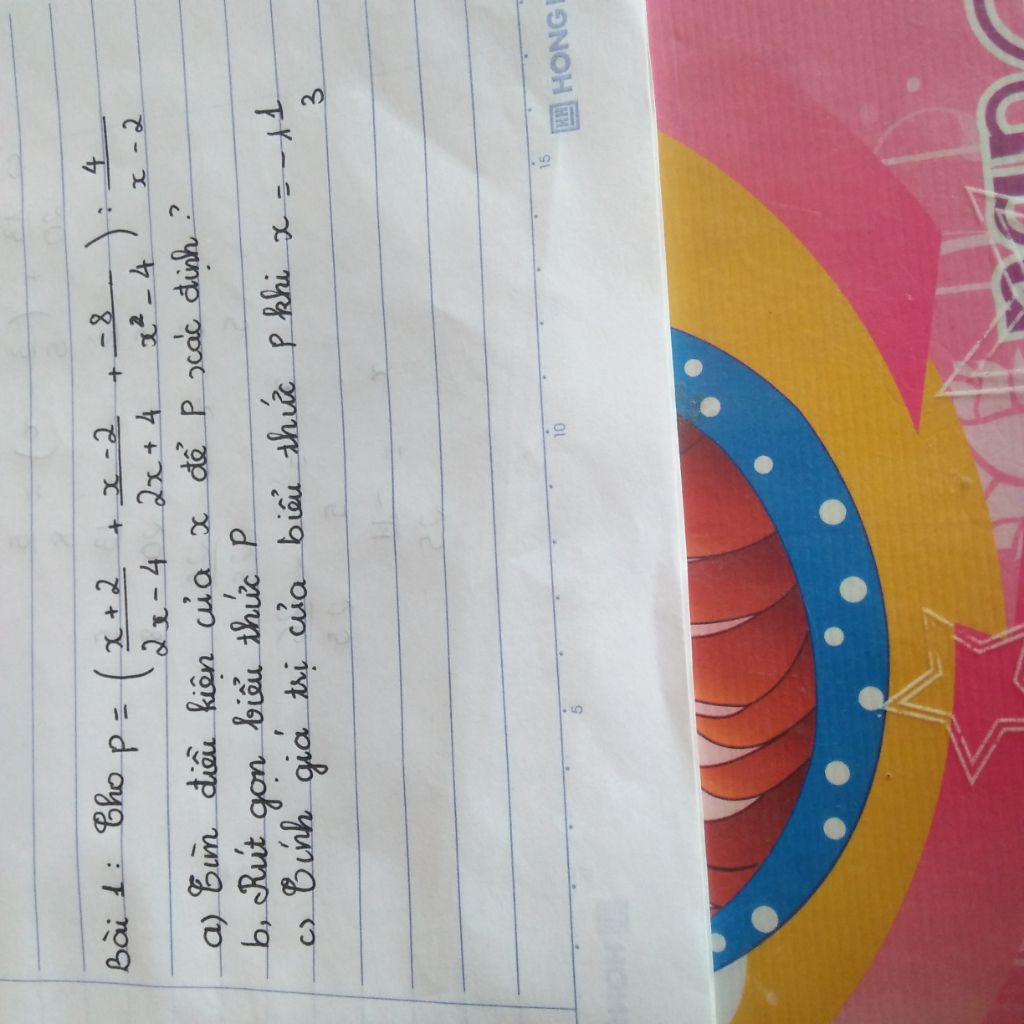 Bài 1: Cho P = ( x + 2 / 2x - 4 + x - 2 / 2x + 4 + -8 / x² - 4 ) : 4 / x - 2
a) Tìm điều kiện của x để P xác định?
b, Rút gọn biểu thức P
c, Tính giá trị của biểu thức P khi x = -1 1/3
5 10 15
HONG